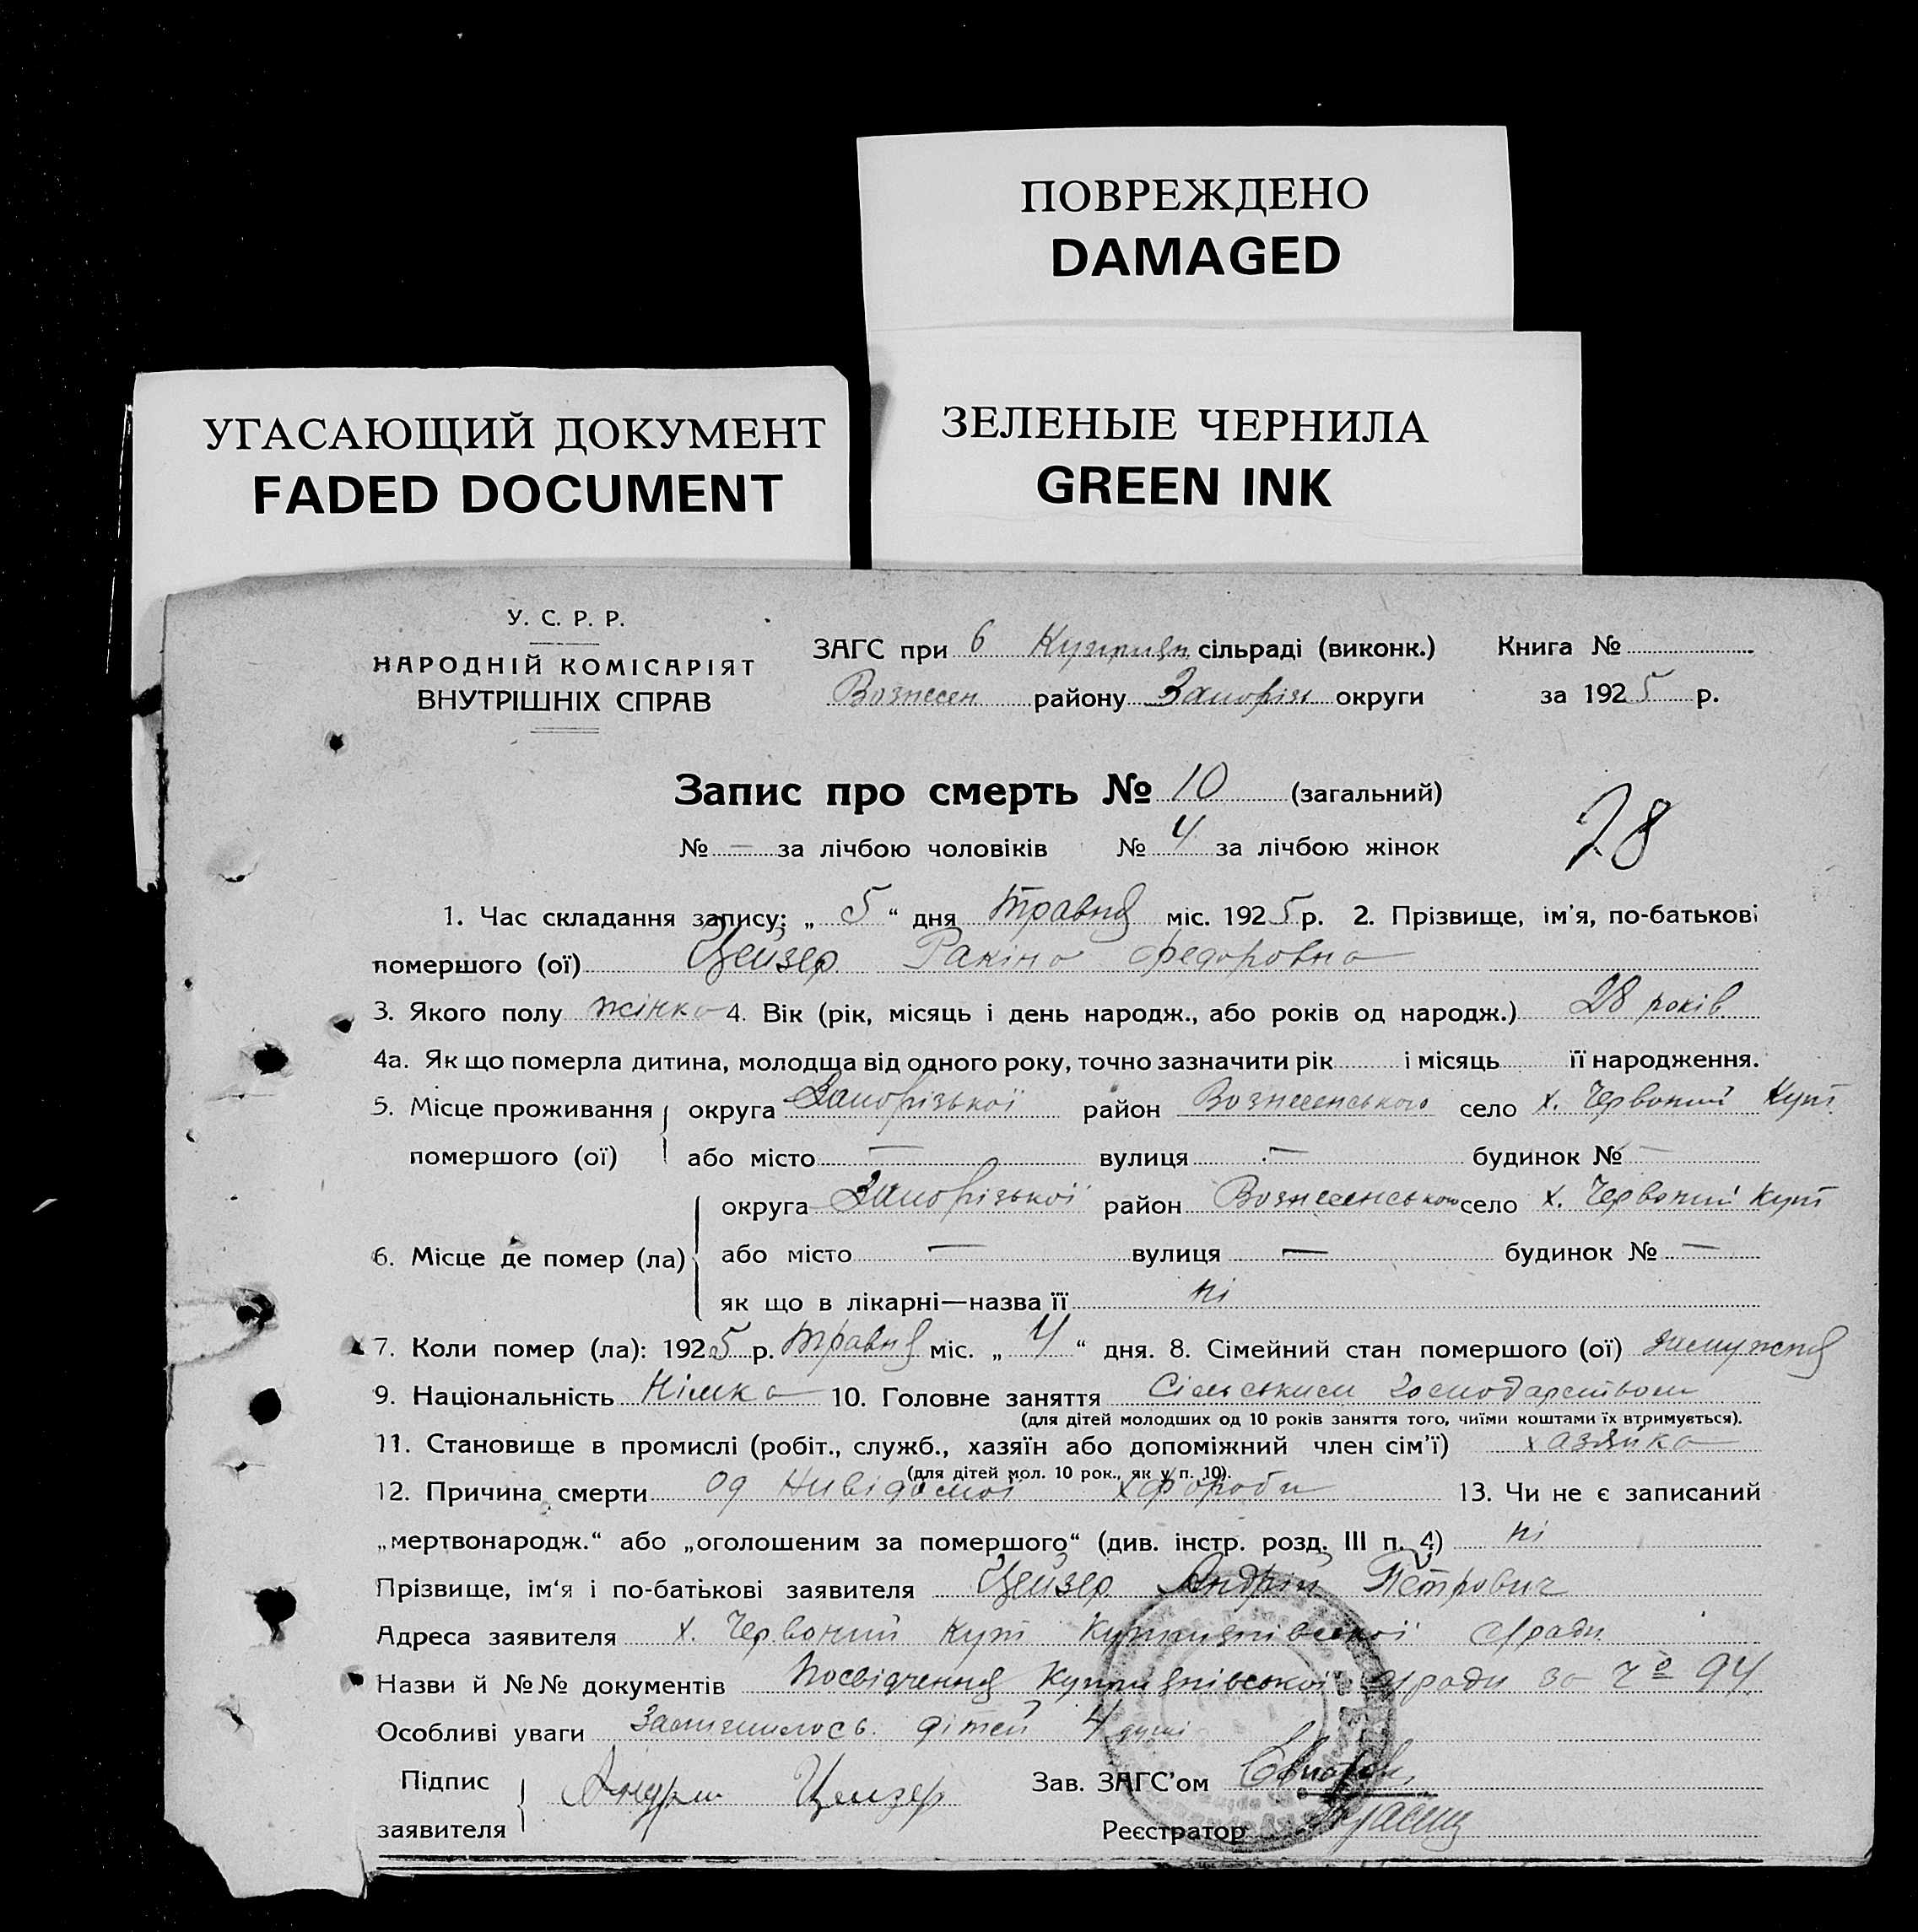 ПОВРЕЖДЕНО
DAMAGED
УГАСАЮЩИЙ ДОКУМЕНТ
FADED DOCUMENT
ЗЕЛЕНЫЕ ЧЕРНИЛА
GREEN INK
У. С. Р. Р.
НАРОДНІЙ КОМІСАРІЯТ
ВНУТРІШНІХ СПРАВ
ЗАГС при 6 Куприян сільраді (виконк.)
Вознесен району Запоріз округи
Книга №
за 1925 р.
Запис про смерть № 10 (загальний)
№ — за лічбою чоловіків № 4 за лічбою жінок
28
1. Час складання запису: „ 5 “ дня травня міс. 1925 р. 2. Прізвище, ім’я, по-батькові
помершого (ої) Цейзер Ракіна Федоровна
3. Якого полу жінка 4. Вік (рік, місяць і день народж., або років од народж.) 28 років
4а. Як що померла дитина, молодща від одного року, точно зазначити рік і місяць її народження.
5. Місце проживання округа Запорізької район Вознесенського село х. Червоний Кут
помершого (ої) або місто — вулиця — будинок № —
округа Запорізької район Вознесенського село х. Червоний Кут
6. Місце де помер (ла) або місто — вулиця — будинок № —
як що в лікарні—назва її ні
7. Коли помер (ла): 1925 р. травня міс. „ 4 “ дня. 8. Сімейний стан помершого (ої) замужня
9. Національність Німка 10. Головне заняття Сільським господарством
(для дітей молодших од 10 років заняття того, чиїми коштами їх втримується).
11. Становище в промислі (робіт., служб., хазяїн або допоміжний член сім’ї) хазяйка
(для дітей мол. 10 рок., як у п. 10).
12. Причина смерти од Нивідомої хфороби 13. Чи не є записаний
„мертвонародж.“ або „оголошеним за помершого“ (див. інстр. розд. III п. 4) ні
Прізвище, ім‘я і по-батькові заявителя Цейзер Андрій Петрович
Адреса заявителя х. Червоний Кут Куприянівської с/ради
Назви й №№ документів Посвідчення Куприянівської с/ради за ч 94
Особливі уваги Залишилось дітей 4 душі
Підпис
заявителя Андрій Цейзер
Зав. ЗАГС’ом
Реєстратор